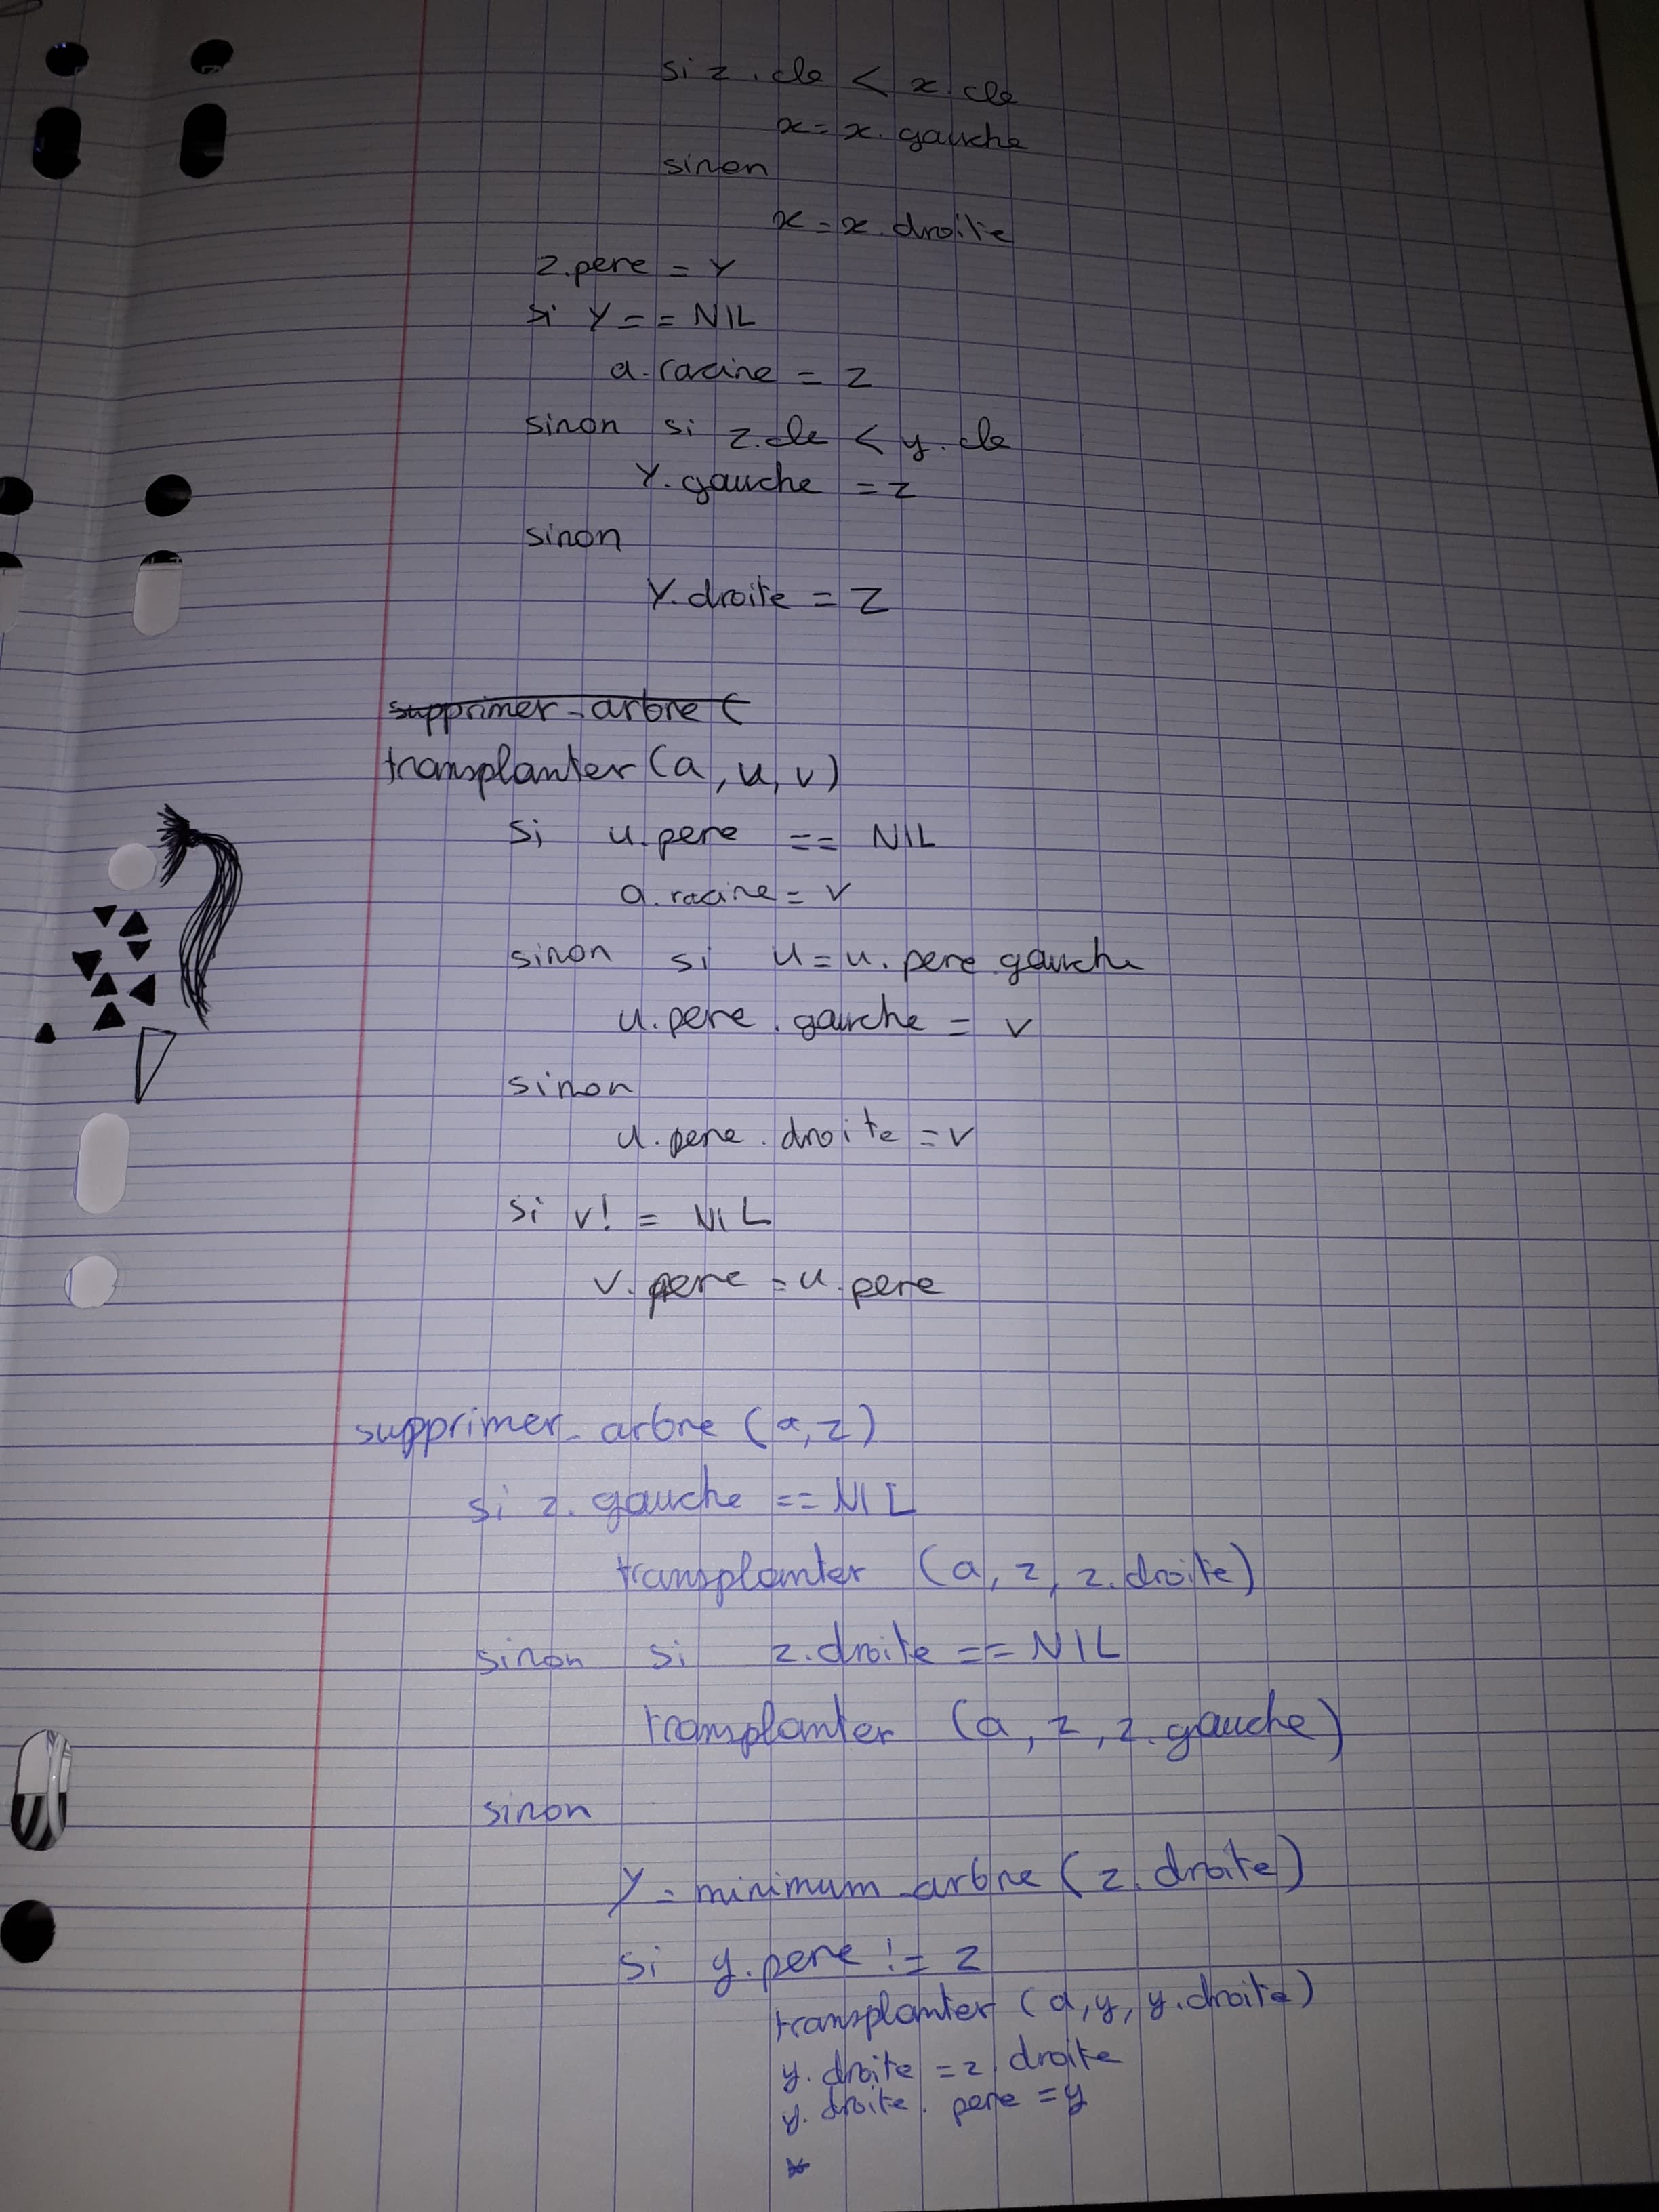 si z.cle < x.cle
x = x.gauche
sinon
x = x.droite
z.pere = y
si y == NIL
a.racine = z
sinon si z.cle < y.cle
y.gauche = z
sinon
y.droite = z
supprimer_arbre (
transplanter (a, u, v)
si u.pere == NIL
a.racine = v
sinon si u = u.pere.gauche
u.pere.gauche = v
sinon
u.pere.droite = v
si v != NIL
v.pere = u.pere
supprimer_arbre (a, z)
si z.gauche == NIL
transplanter (a, z, z.droite)
sinon si z.droite == NIL
transplanter (a, z, z.gauche)
sinon
y = minimum_arbre (z.droite)
si y.pere != z
transplanter (a, y, y.droite)
y.droite = z.droite
y.droite.pere = y